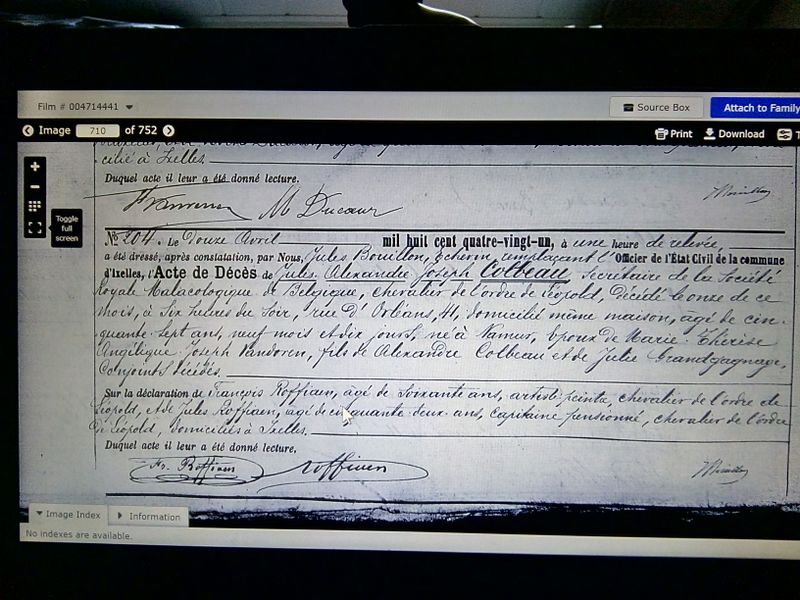 Film # 004714441
Source Box
Attach to Family
Image 710 of 752
Print
Download
T
Toggle
full
screen
cilié à Ixelles
Duquel acte il leur a été donné lecture.
M Ducœur
No 204. Le Douze Avril mil huit cent quatre-vingt-un, à une heure de relevée,
a été dressé, après constatation, par Nous, Jules Bouillon, Echevin remplaçant l'Officier de l'État Civil de la commune
d'Ixelles, l'Acte de Décès de Jules Alexandre Joseph Colbeau, Secrétaire de la Société
Royale Malacologique de Belgique, chevalier de l'ordre de Léopold, Décédé le onze de ce
mois, à Six heures du Soir, rue D'Orléans, 41, domicilié même maison, âgé de cin-
quante Sept ans, neuf mois et dix jours, né à Namur, Epoux de Marie Thérèse
Angélique Joseph Vandoren, fils de Alexandre Colbeau et de Julie Grandgagnage,
Conjoints Décédés.
Sur la déclaration de François Roffiaen, âgé de Soixante ans, artiste peintre, chevalier de l'ordre de
Léopold, et de Jules Roffiaen, âgé de cinquante deux ans, Capitaine pensionné, chevalier de l'ordre
de Léopold, domiciliés à Ixelles.
Duquel acte il leur a été donné lecture.
Fr. Roffiaen
Roffiaen
Image Index
Information
No indexes are available.